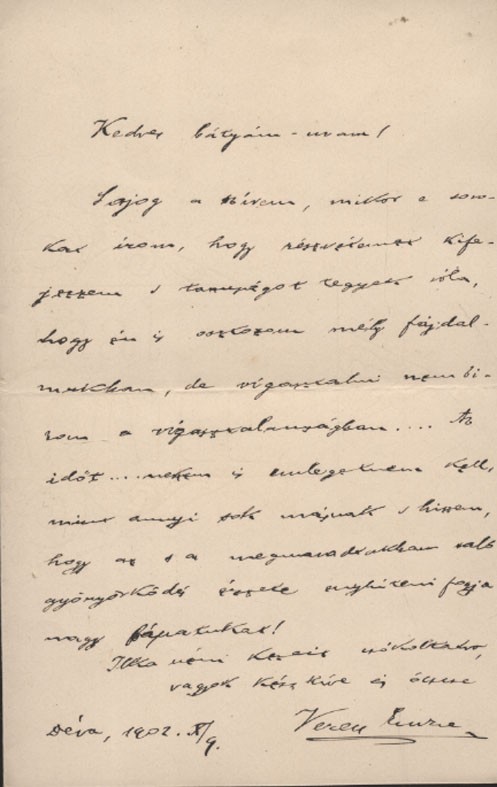 Kedves bátyám-uram!
Sajog a szívem, mikor e soro-
kat írom, hogy részvétemet kife-
jezzem s tanúságot tegyek róla,
hogy én is osztozom mély fájdal-
mukban, de vigasztalni nem bí-
rom a vigasztalanságban.... Az
időt.... nekem is emlegetnem kell,
mint annyi sok másnak s hiszem,
hogy az s a megmaradottakban való
gyönyörködés érzete enyhíteni fogja
nagy bánatukat!
Ilka néni kezeit csókoltatva,
vagyok kész híve és öccse
Déva, 1902. X/9.
Veress Endre